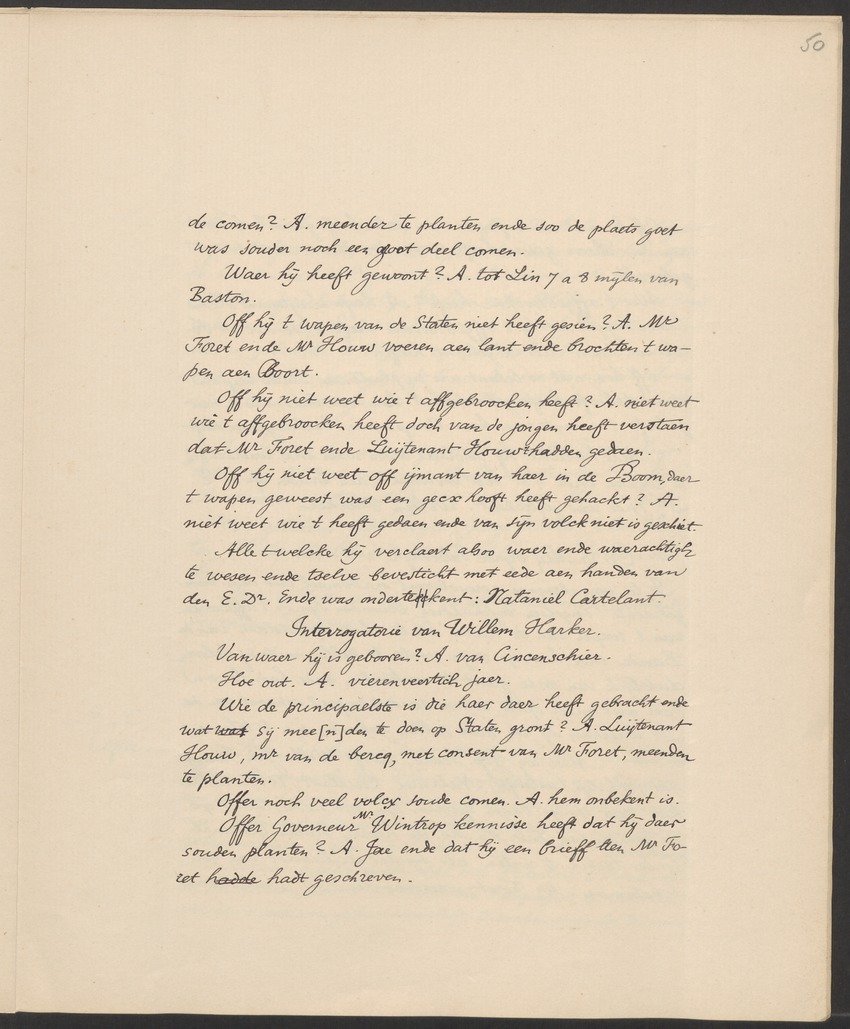 50
de comen? A. meender te planten ende soo de plaets goet
was souder noch een groot deel comen.
Waer hij heeft gewoont? A. tot Lin 7 a 8 mijlen van
Baston.
Off hij t wapen van de Staten niet heeft gesien? A. Mr
Foret ende Mr Houw voeren aen lant ende brochten t wa-
pen aen Boort.
Off hij niet weet wie t affgebroocken heeft? A. niet weet
wie t affgebroocken heeft doch van de jongen heeft verstaen
dat Mr Foret ende Luijtenant Houw t hadden gedaen.
Off hij niet weet off ijmant van haer in de Boom, daer
t wapen geweest was een gecx hooft heeft gehackt? A.
niet weet wie t heeft gedaen ende van sijn volck niet is geschiet.
Alle t welcke hij verclaert alsoo waer ende waerachtigh
te wesen ende tselve bevesticht met eede aen handen van
den E. Dr. Ende was onderteekent: Nataniel Cartelant.
Interrogatorie van Willem Harker.
Van waer hij is gebooren? A. van Cincenschier.
Hoe out. A. vierenveertich jaer.
Wie de principaelste is die haer daer heeft gebracht ende
wat wat sij mee[n]den te doen op Staten gront? A. Luijtenant
Houw, mr van de bercq, met consent van Mr Foret, meenden
te planten.
Offer noch veel volcx soude comen. A. hem onbekent is.
Offer Governeur Mr Wintrop kennisse heeft dat hij daer
souden planten? A. Jae ende dat hij een brieff aen Mr Fo-
ret hadde hadt geschreven.